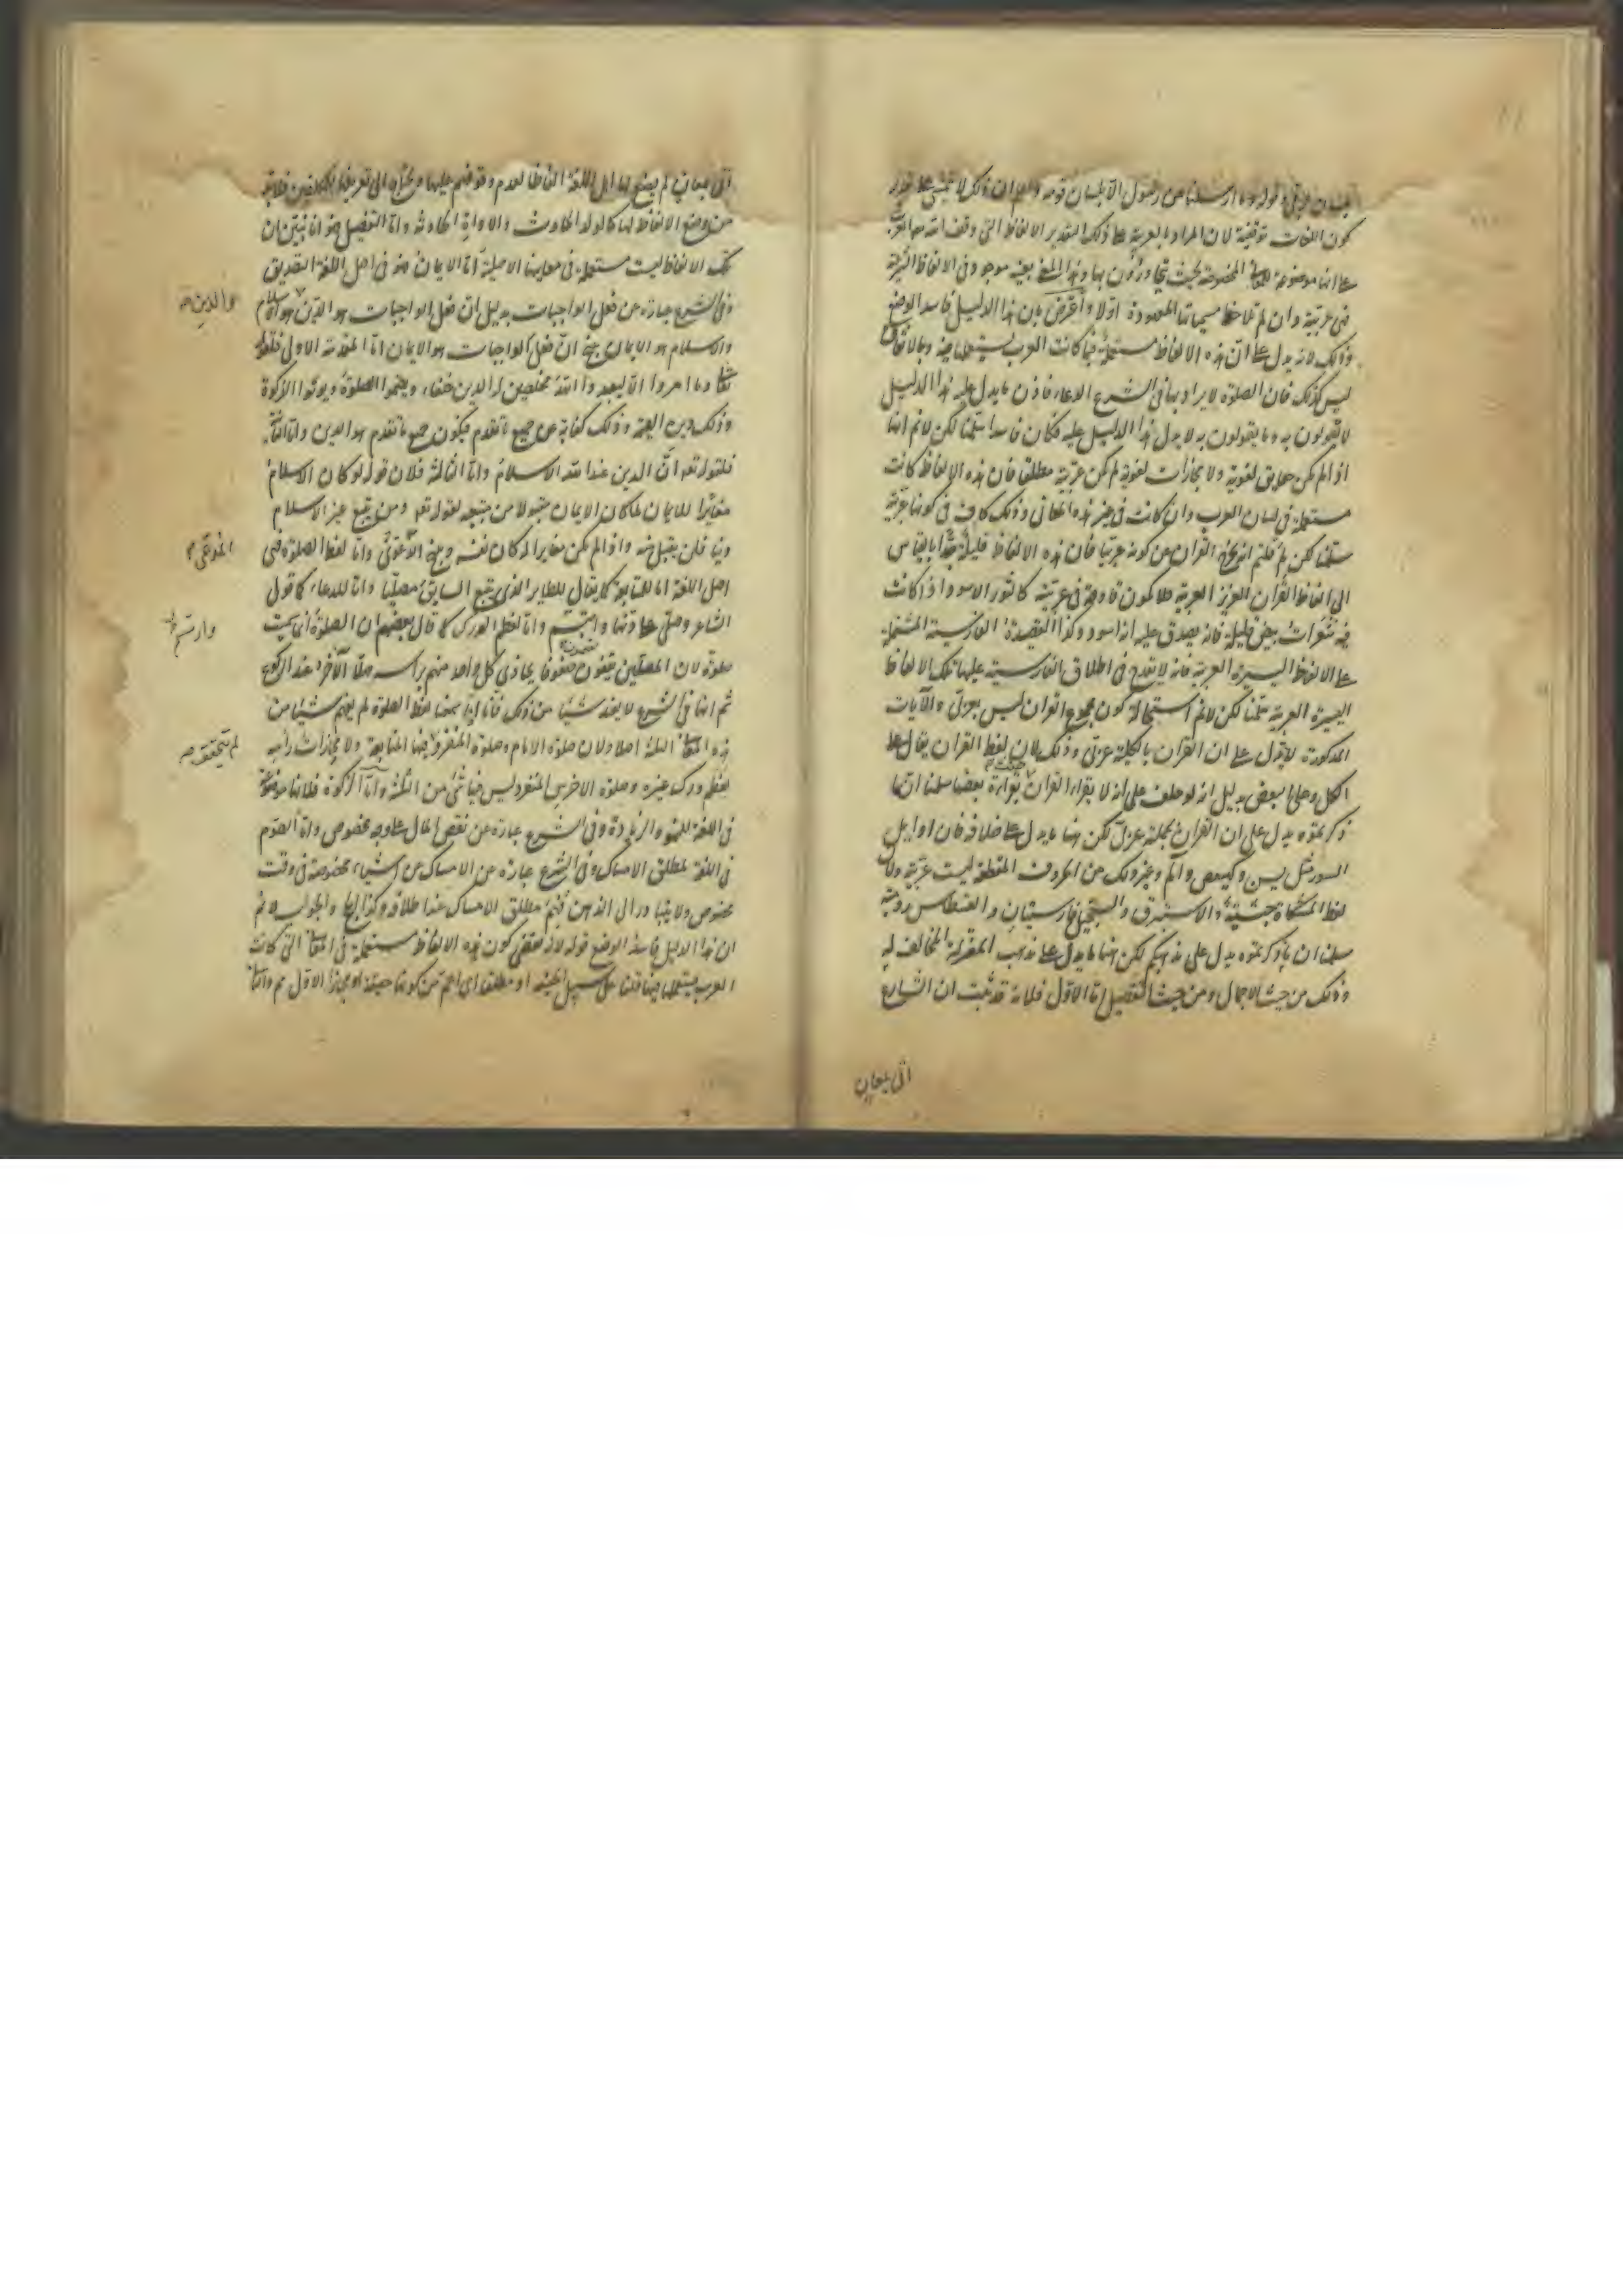 بلسان قومه قوله وما ارسلنا من رسول الا بلسان قومه ان ذلك لا يتمشى على تقدير
كون اللغات توقيفية لان المراد بالعربية على ذلك التقدير الالفاظ التى وقف الله العرب
على انها موضوعة للمعانى المخصوصة بحيث يتحاورون بها وهذا المعنى بعينه موجود فى الالفاظ الشرعية
فهى عربية وان لم تلاحظ مسمياتها المعهودة اولا واعترض بان هذا الدليل فاسد الوضع
وذلك لانه يدل على ان هذه الالفاظ مستعملة فيما كانت العرب يستعملها فيه وبالاتفاق
ليس كذلك فان الصلوة لا يراد بها فى الشرع الدعاء فاذن ما يدل عليه هذا الدليل
لا يقولون به وما يقولون به لا يدل هذا الدليل عليه فكان فاسدا سلمنا لكن لا نم انها
اذا لم يكن حقايق لغوية ولا مجازات لغوية لم يكن عربية مطلقا فان هذه الالفاظ كانت
مستعملة فى لسان العرب وان كانت فى غير هذه المعانى وذلك كاف فى كونها عربية
سلمنا لكن لم قلتم انه يخرج القران عن كونه عربيا فان هذه الالفاظ قليلة جدا بالقياس
الى الفاظ القران العزيز العربية فلا يكون قادحة فى عربيته كالثور الاسود اذا كانت
فيه شعرات بيض قليلة فانه يصدق عليه انه اسود وكذا القصيدة الفارسية المشتملة
على الالفاظ اليسيرة العربية فانه لا يقدح فى اطلاق الفارسية عليها تلك الالفاظ
اليسيرة العربية سلمنا لكن لا نم استحالة كون مجموع القران ليس بعربى والآيات
المذكورة لا يدل على ان القران بالكلية عربى وذلك لان لفظ القران يقال على
الكل وعلى البعض بدليل انه لو حلف على انه لا يقراء القران حنث بقراءة بعضه سلمنا ان ما
ذكرتموه يدل على ان القران بجملته عربى لكن هنا ما يدل على خلافه فان اوايل
السور مثل يس وكهيعص والم وغير ذلك من الحروف المقطعة ليست عربية ولان
لفظ المشكاة حبشية والاستبرق والسجيل فارسيتان والقسطاس رومية
سلمنا ان ما ذكرتموه يدل على مذهبكم لكن هنا ما يدل على مذهب المعتزلة المخالف له
وذلك من حيث الاجمال ومن حيث التفصيل اما الاول فلانه قد ثبت ان الشارع
اتى بمعان
اتى بمعان لم يضع لها اهل اللغة الفاظا لعدم وقوفهم عليها ويحتاج الى تعريفها للمكلفين فلابد
من وضع الالفاظ لها كالولد الحادث والاداة الحادثة واما التفصيل فهو انا نبين ان
تلك الالفاظ ليست مستعملة فى معانيها الاصلية اما الايمان فهو فى اصل اللغة التصديق
وفى الشرع عبارة عن فعل الواجبات بدليل ان فعل الواجبات هو الدين هو الاسلام
والدين صح
والاسلام هو الايمان ينتج ان فعل الواجبات هو الايمان اما المقدمة الاولى فلقوله
تعالى وما امروا الا ليعبدوا الله مخلصين له الدين حنفاء ويقيموا الصلوة ويوتوا الزكوة
وذلك دين القيمة وذلك كناية عن جميع ما تقدم فيكون جميع ما تقدم هو الدين واما الثانية
فلقوله تعه ان الدين عند الله الاسلام واما الثالثة فلان قوله لو كان الاسلام
مغايرا للايمان لما كان الايمان مقبولا من مبتغيه لقوله تعه ومن يبتغ غير الاسلام
دينا فلن يقبل منه واذا لم يكن مغايرا له كان نفسه وينتج واما لفظ الصلوة فهى
المدعى
اصل اللغة اما للمتابعة كما يقال للطاير الذى يتبع السابق مصليا واما للدعاء كما قول
الشاعر وصلى على دنها وارتسم واما لعظم الورك كما قال بعضهم ان الصلوة انما سميت
وارتسم
صلوة لان المصلين يقفون صفوفا يحاذى كل واحد منهم براسه صلا الآخر عند الركوع
ثم انها فى الشرع لا يفيد شيئا من ذلك فانا اذا سمعنا لفظ الصلوة لم يفهم شيئا من
هذه المعانى الثلثة اصلا ولان صلوة الامام وصلوة المنفرد فيها المتابعة ولا محاذاة راسه
لم يتحقق صح
بعظم ورك غيره وصلوة الاخرس المنفرد ليس فيها شئ من الثلثة واما الزكوة فلانها موضوعة
فى اللغة للنمو والزيادة وفى الشرع عبارة عن نقص المال على وجه مخصوص واما الصوم
فى اللغة لمطلق الامساك وفى الشرع عبارة عن الامساك عن اشياء مخصوصة فى وقت
مخصوص ولا يتبادر الى الذهن فهم مطلق الامساك عند اطلاقه وكذا الحج والجواب لا نم
ان هذا الدليل فاسد الوضع قوله لانه يقتضى كون هذه الالفاظ مستعملة فى المعانى التى كانت
العرب يستعملها فيها قلنا على سبيل الحقيقة او مطلقا اى اعم من كونها حقيقة او مجازا الاول مم واما